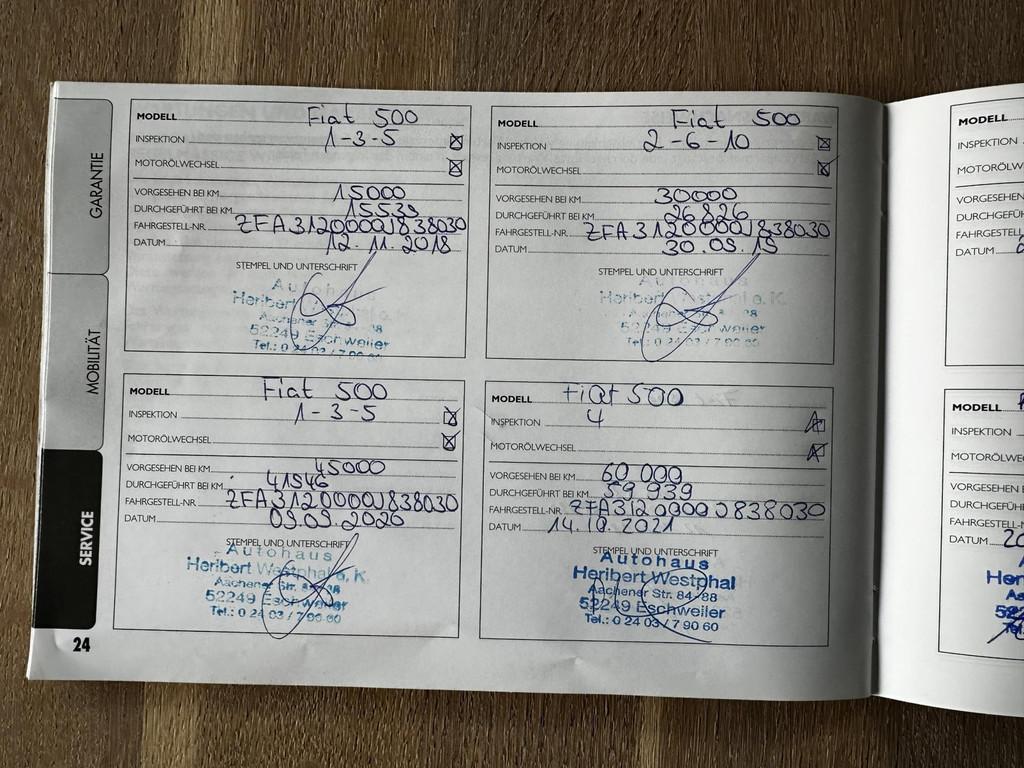 GARANTIE
MOBILITÄT
SERVICE
24
MODELL Fiat 500
INSPEKTION 1-3-5
MOTORÖLWECHSEL
VORGESEHEN BEI KM 15000
DURCHGEFÜHRT BEI KM 15539
FAHRGESTELL-NR. ZFA3120000J838030
DATUM 12.11.2018
STEMPEL UND UNTERSCHRIFT
Autohaus
Heribert
Aachener Str. 84-88
52249 Eschweiler
Tel.: 0 24 03 / 7 90 60
MODELL Fiat 500
INSPEKTION 2-6-10
MOTORÖLWECHSEL
VORGESEHEN BEI KM 30000
DURCHGEFÜHRT BEI KM 26826
FAHRGESTELL-NR. ZFA3120000J838030
DATUM 30.09.19
STEMPEL UND UNTERSCHRIFT
Autohaus
Heribert Westphal e. K.
Aachener Str. 84-88
52249 Eschweiler
Tel.: 0 24 03 / 7 90 60
MODELL Fiat 500
INSPEKTION 1-3-5
MOTORÖLWECHSEL
VORGESEHEN BEI KM 45000
DURCHGEFÜHRT BEI KM 41546
FAHRGESTELL-NR. ZFA3120000J838030
DATUM 09.09.2020
STEMPEL UND UNTERSCHRIFT
Autohaus
Heribert Westphal e. K.
Aachener Str. 84-88
52249 Eschweiler
Tel.: 0 24 03 / 7 90 60
MODELL Fiat 500
INSPEKTION 4
MOTORÖLWECHSEL
VORGESEHEN BEI KM 60 000
DURCHGEFÜHRT BEI KM 59 939
FAHRGESTELL-NR. ZFA3120000J838030
DATUM 14.10.2021
STEMPEL UND UNTERSCHRIFT
Autohaus
Heribert Westphal
Aachener Str. 84-88
52249 Eschweiler
Tel.: 0 24 03 / 7 90 60
MODELL
INSPEKTION
MOTORÖLW
VORGESEHEN
DURCHGEFÜ
FAHRGESTELL
DATUM
MODELL
INSPEKTION
MOTORÖLWE
VORGESEHEN B
DURCHGEFÜHR
FAHRGESTELL-N
DATUM 20
Her